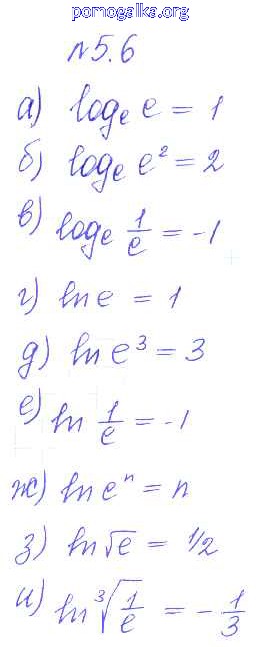 pomogalka.org
№5.6
а) logₑ e = 1
б) logₑ e² = 2
в) logₑ 1/e = -1
г) ln e = 1
д) ln e³ = 3
е) ln 1/e = -1
ж) ln eⁿ = n
з) ln √e = 1/2
и) ln ³√(1/e) = - 1/3